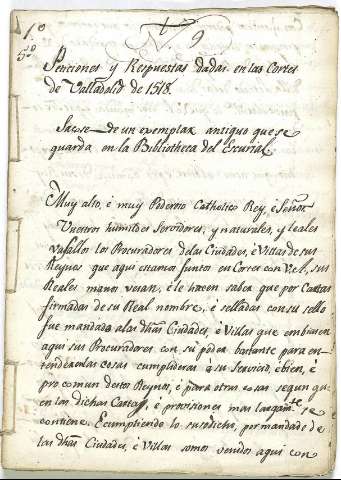 1º
5º
Nº 9
Peticiones y Respuestas dadas en las Cortes
de Valladolid de 1518.
Sacose de un exemplar antiguo que se
guarda en la Bibliotheca del Escurial.
Muy alto, è muy Poderoso Catholico Rey, è Señor.
Vuestros humildes Servidores, y naturales, y leales
vasallos los Procuradores de las Ciudades, è Villas de sus
Reynos que aqui estamos juntos en Cortes con V.A., sus
Reales manos vesan, è le hacen saber que por Cartas
firmadas de su Real nombre, è selladas con su sello
fue mandado a las dhas Ciudades, è Villas que embiasen
aqui sus Procuradores con su poder bastante para en-
tender en las cosas cumplideras a su Servicio, è bien, è
pro comun destos Reynos, è para otras cosas segun que
en las dichas Cartas, è provisiones mas largamte se
contiene. E cumpliendo lo susodicho, por mandado de
las dhas Ciudades, è Villas somos venidos aqui con